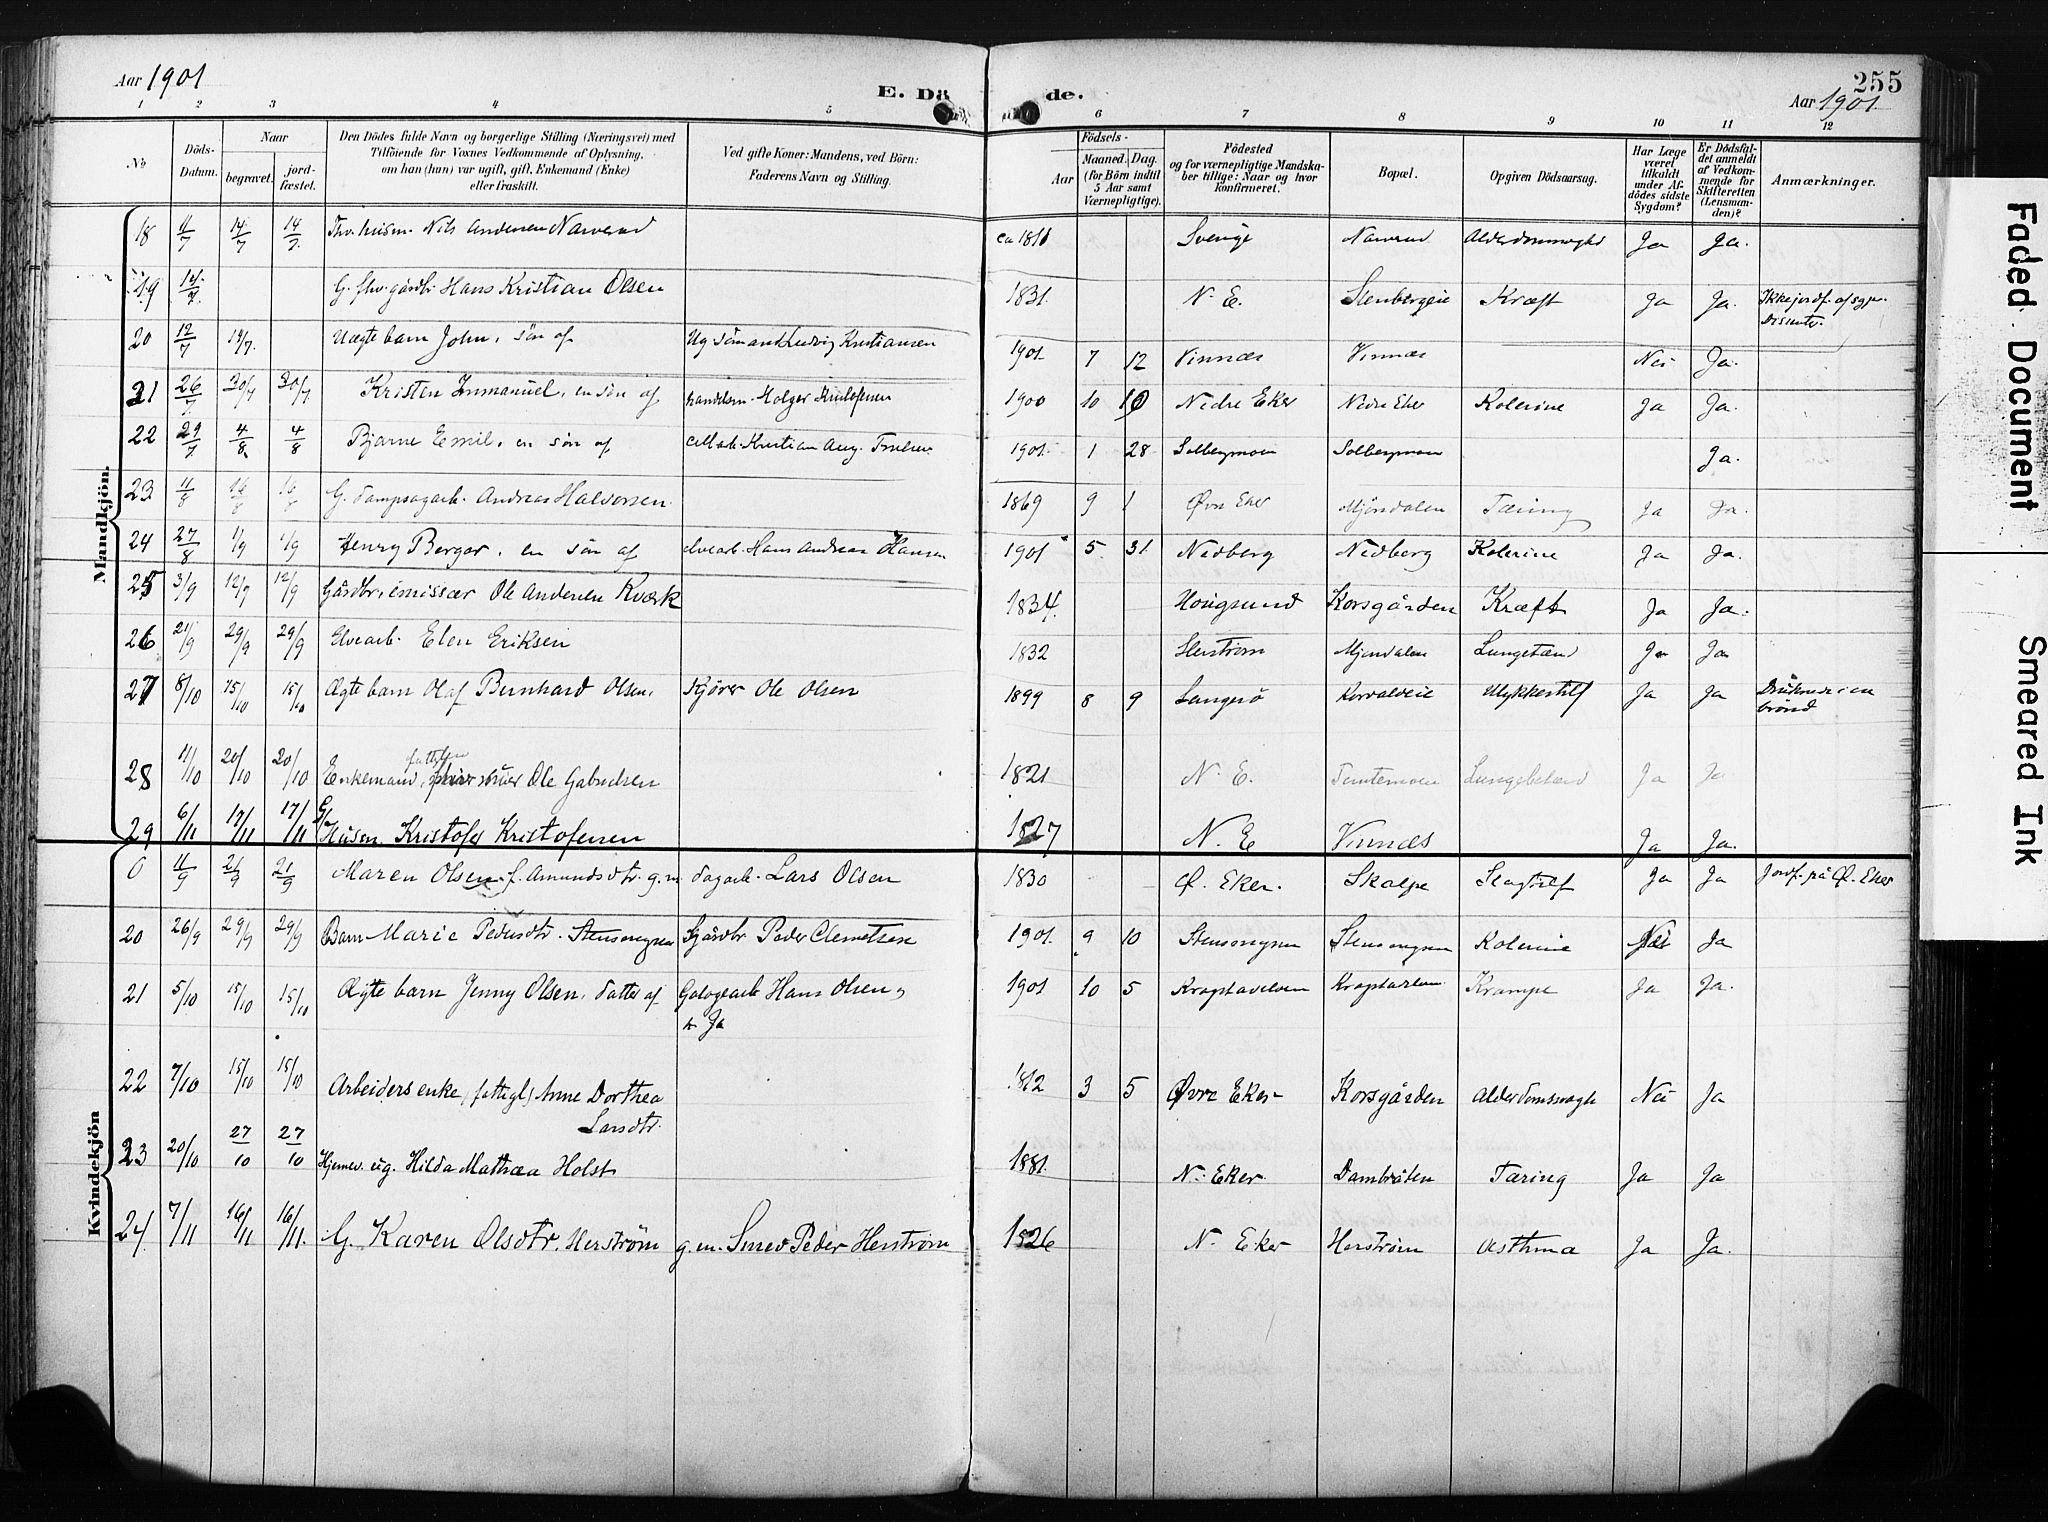 Aar 1901
E. Dö de.
255
Aar 1901.
1 2 3 4 5 6 7 8 9 10 11 12
No
Döds-Datum.
Naar
begravet.
jord-fæstet.
Den Dödes fulde Navn og borgerlige Stilling (Næringsvei) med
Tilföiende for Voxnes Vedkommende af Oplysning,
om han (hun) var ugift, gift, Enkemand (Enke)
eller fraskilt.
Ved gifte Koner: Mandens, ved Börn:
Faderens Navn og Stilling.
Födsels-
Aar
Maaned. Dag.
(for Börn indtil
5 Aar samt
Værnepligtige).
Födested
og for værnepligtige Mandska-
ber tillige: Naar og hvor
Konfirmeret.
Bopæl.
Opgiven Dödsaarsag.
Har Læge
været
tilkaldt
under Af-
dödes sidste
Sygdom?
Er Dödsfal-
det anmeldt
af Vedkom-
mende for
Skifteretten
(Lensman-
den)?
Anmærkninger.
Mandkjön.
18 11/7 14/7 14/7 Nils Andersen Narverud ca 1811 Sverige Narverud Alderdomssvaghed Ja Ja.
19 14/7 G. Hans Kristian Olsen 1831. N. E. Stenbergeie Kræft Ja Ja. Ikke jordf. af
Dissenter.
20 12/7 14/7. Uægte barn John, sön af Ug sömand Ludvig Kristiansen 1901. 7 12 Vinnæs Vinnæs Nei Ja.
21 26/7 30/7 30/7 Kristen Immanuel, en sön af Holger 1900 10 10 Nedre Eker Nedre Eker Kolerine Ja Ja.
22 29/7 4/8 4/8 Bjarne Emil, en sön af Kristian Aug. 1901. 1 28 Solbergmoen Solbergmoen Ja.
23 11/8 16/8 16/8 G. dampsagarb. Andreas Halvorsen 1869 9 1 Øvre Eker Mjöndalen Tæring Ja Ja.
24 27/8 1/9 1/9 Henry Berger, en sön af elvearb. Hans Andreas Hansen 1901 5 31. Nedberg Nedberg Kolerine Ja Ja.
25 3/9 12/9 12/9 Gårdbr. emissær Ole Andersen Kværk 1834. Hougsund Korsgården Kræft Ja Ja.
26 21/9 29/9 29/9 Elvearb. Elen Eriksen 1832 Herström Mjöndalen Ja Ja
27 8/10 15/10 15/10 Ægte barn Olaf Bernhard Olsen, Kjörer Ole Olsen 1899 8 9 Langesö Ulykkestilf Ja Ja Druknede i en
brönd
28 11/10 20/10 20/10 Enkemand, Ole Gabrielsen 1821 N. E. Temtemoen Ja Ja
29 6/11 17/11 17/11 G/ Husm. Kristofer Kristofersen 1827 N. E Vinnæs Ja Ja.
Kvindekjön
11/9 21/9 21/9 Maren Olsen f. Amundsdtr. g. m dagarb. Lars Olsen 1830 Ø. Eker. Skalpe Slagtilf Ja Ja Jordf. på Ø. Eker
20 26/9 29/9 29/9 Barn Marie Pedersdtr. Stensengen Gårdbr Peder Clemetsen 1901. 9 10 Stensengen Stensengen Kolerine Nei Ja
21 5/10 15/10 15/10 Ægte barn Jenny Olsen, datter af Hans Olsen 1901 10 5 Krampe Ja Ja.
Ja
22 7/10 15/10 15/10 Arbeiders enke, (fattigl) Anne Dorthea
Larsdtr. 1812 3 5 Øvre Eker Korsgården Alderdomssvagh Nei Ja
23 20/10 27/10 27/10 Hjemv. ug. Hilda Mathea Holst 1881. N. Eker Dambråten Tæring Ja Ja
24 7/11 16/11 16/11. G. Karen Olsdtr. Herström g. m. Smed Peder Herström 1826 N. Eker Herström Asthma Ja Ja.
Faded Document
Smeared Ink